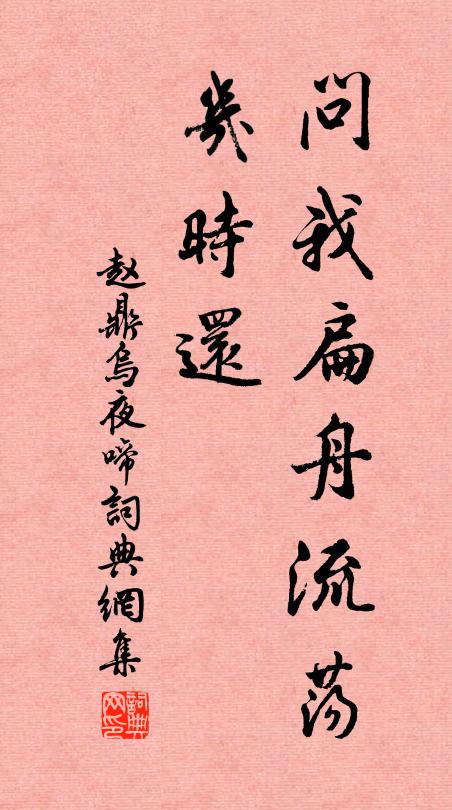 問我扁舟流蕩
幾時還
赵鼎烏夜啼詞典網集
詞典网印